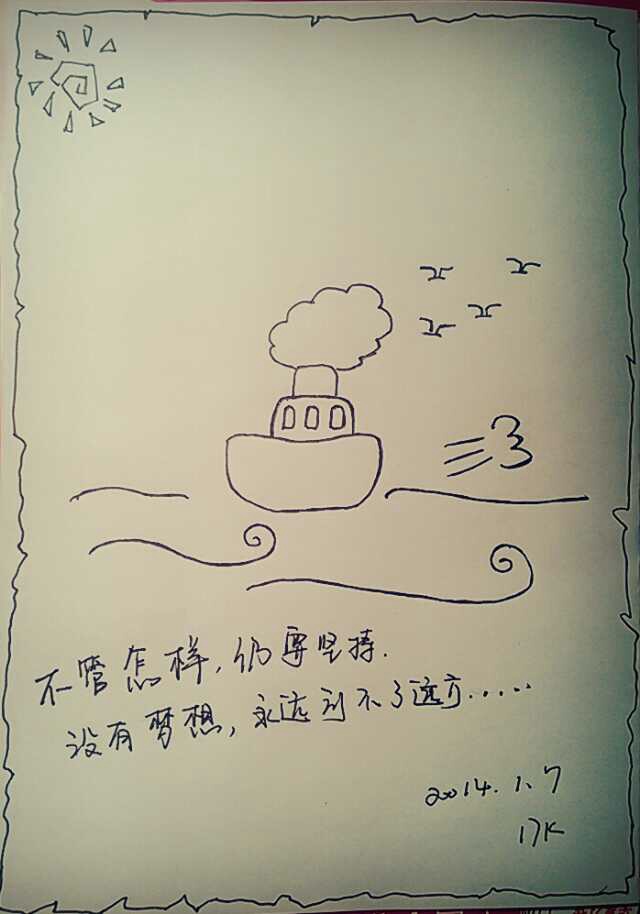 不管怎样，仍要坚持.
没有梦想，永远到不了远方......
2014.1.7
17K